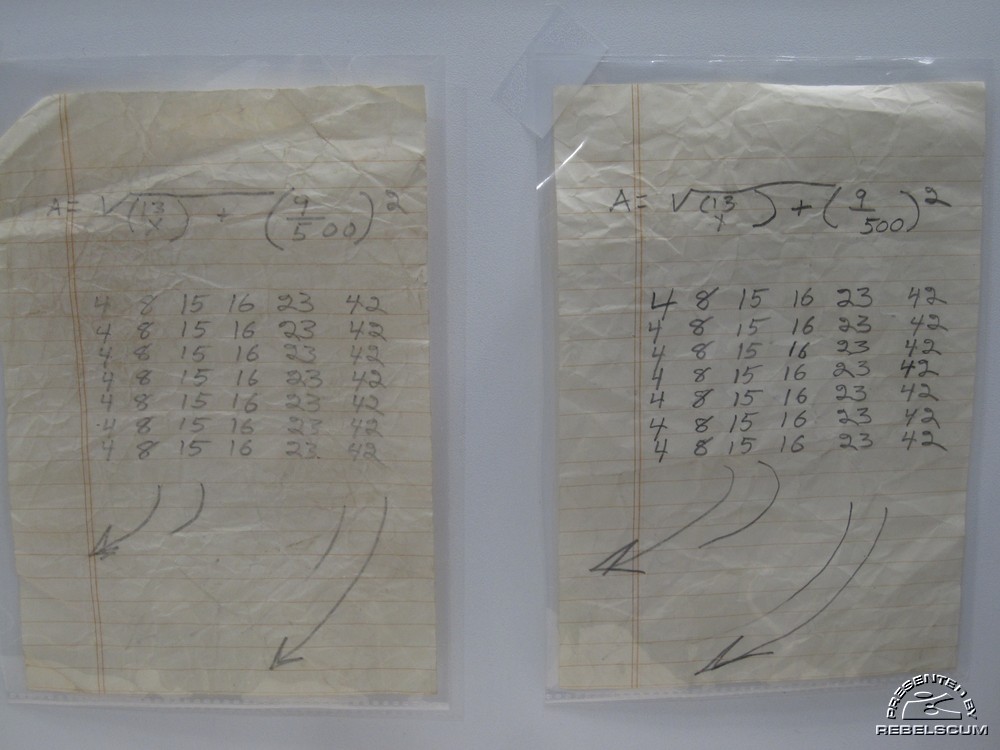 A = √(13/X) + (9/500)²
4 8 15 16 23 42
4 8 15 16 23 42
4 8 15 16 23 42
4 8 15 16 23 42
4 8 15 16 23 42
4 8 15 16 23 42
4 8 15 16 23 42
A = √(13/Y) + (9/500)²
4 8 15 16 23 42
4 8 15 16 23 42
4 8 15 16 23 42
4 8 15 16 23 42
4 8 15 16 23 42
4 8 15 16 23 42
4 8 15 16 23 42
PRESENTED BY
REBELSCUM